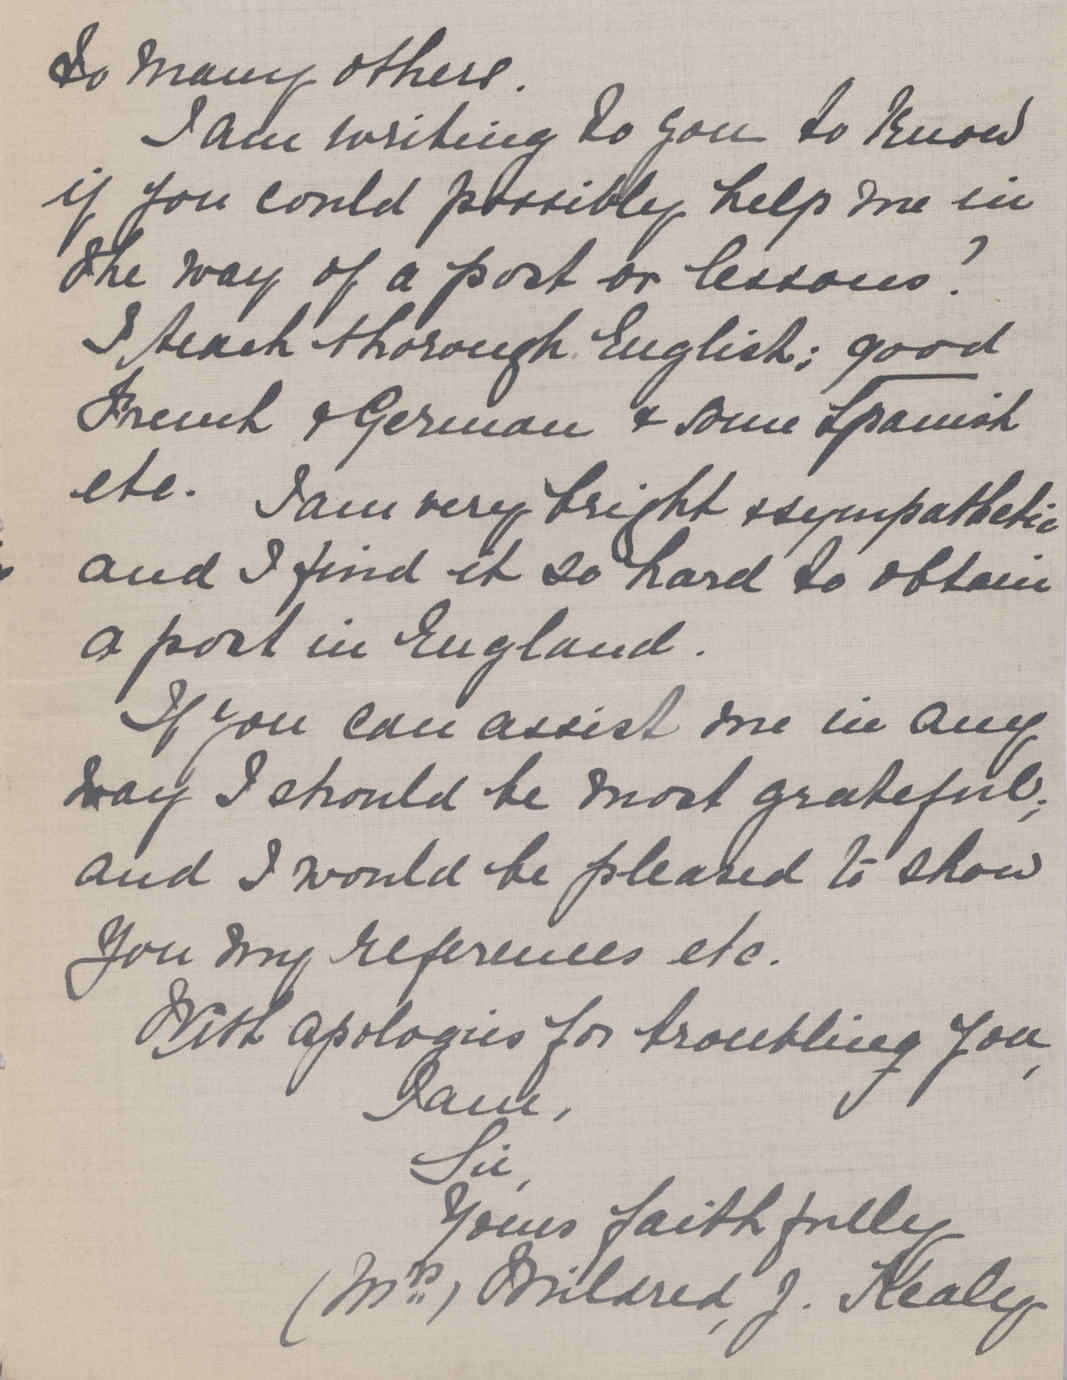 to many others.
I am writing to you to know
if you could possibly help me in
the way of a post or lessons?
I teach thorough English; good
French & German & some Spanish
etc. I am very bright & sympathetic
and I find it so hard to obtain
a post in England.
If you can assist me in any
way I should be most grateful,
and I would be pleased to show
you my references etc.
With apologies for troubling you,
I am,
Sir,
Yours faithfully
(Mrs.) Mildred, J. Kealey